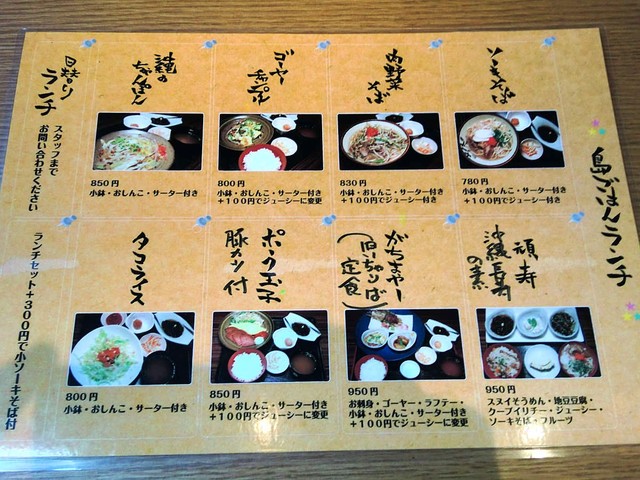 島ごはんランチ
ソーキそば
780円
小鉢・おしんこ・サーター付き
+100円でジューシーに変更
肉野菜
そば
830円
小鉢・おしんこ・サーター付き
+100円でジューシーに変更
ゴーヤー
チャンプル
800円
小鉢・おしんこ・サーター付き
+100円でジューシーに変更
沖縄の
ちゃんぽん
850円
小鉢・おしんこ・サーター付き
日替り
ランチ
スタッフまで
お問い合わせください
頑寿
沖縄長寿
の素
950円
スヌイそうめん・地豆豆腐・
クーブイリチー・ジューシー・
ソーキそば・フルーツ
がちまやー
定食
950円
お刺身・ゴーヤー・ラフテー・
小鉢・おしんこ・サーター付き
+100円でジューシーに変更
ポーク玉子
豚カツ付
850円
小鉢・おしんこ・サーター付き
+100円でジューシーに変更
タコライス
800円
小鉢・おしんこ・サーター付き
ランチセット+300円で小ソーキそば付